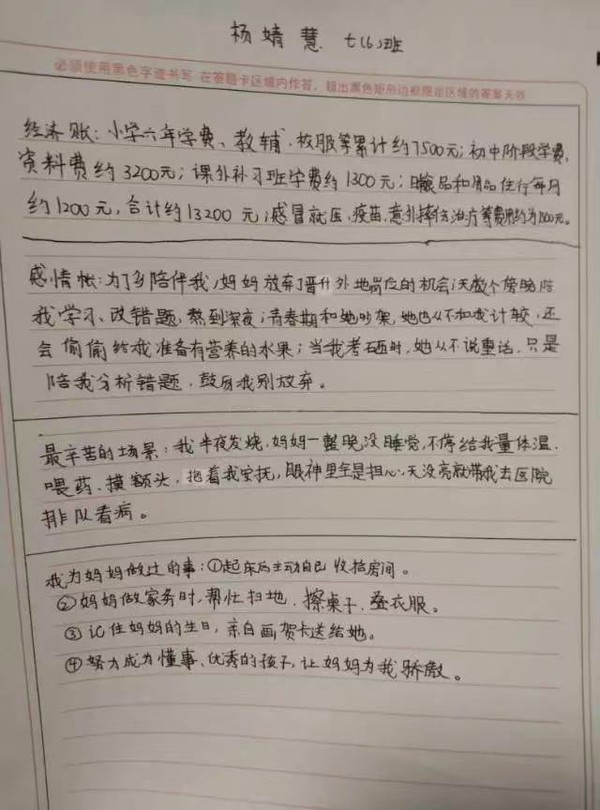 杨婧慧 七(6)班
必须使用黑色字迹书写 在答题卡区域内作答，超出黑色矩形边框限定区域的答案无效
经济账：小学六年学费、教辅、校服等累计约7500元；初中阶段学费，
资料费约3200元；课外补习班学费约1300元；日用品和住行每月
约1200元，合计约13200元；感冒就医、疫苗、意外摔伤治疗等费用约为1200元。
感情帐：为了多陪伴我，妈妈放弃了晋升外地岗位的机会；无数个傍晚陪
我学习、改错题，熬到深夜；青春期和她吵架，她也从不和我计较，还
会偷偷给我准备有营养的水果；当我考砸时，她从不说重话，只是
陪我分析错题，鼓励我别放弃。
最辛苦的场景：我半夜发烧，妈妈一整晚没睡觉，不停给我量体温、
喂药、摸额头，抱着我安抚，眼神里全是担心，天没亮就带我去医院
排队看病。
我为妈妈做过的事：①起床后主动自己收拾房间。
②妈妈做家务时，帮忙扫地、擦桌子、叠衣服。
③记住妈妈的生日，亲自画贺卡送给她。
④努力成为懂事、优秀的孩子，让妈妈为我骄傲。